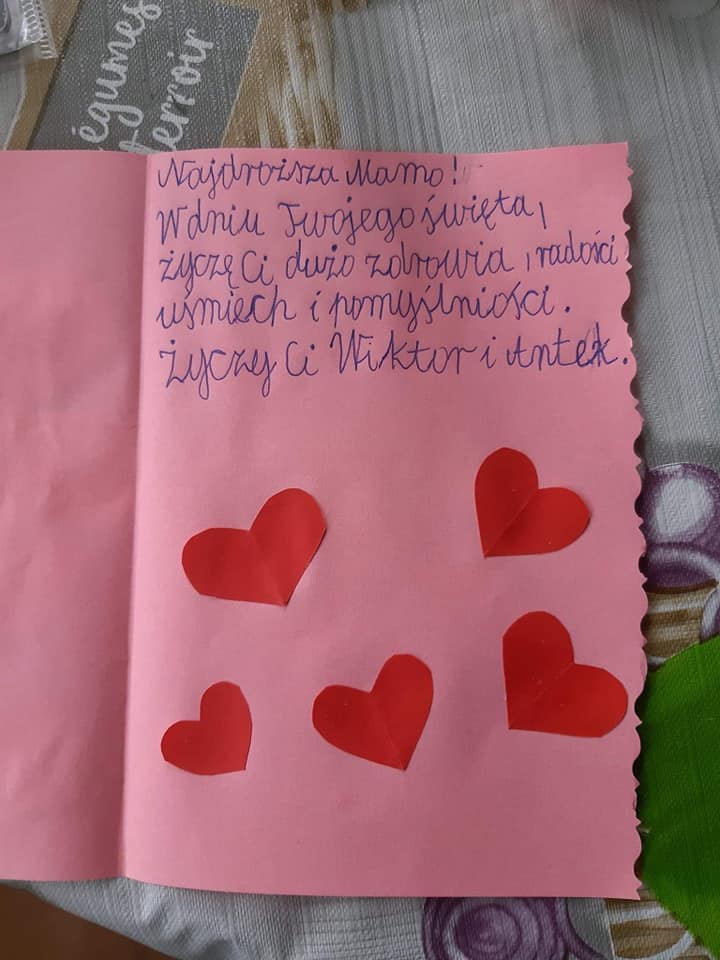 égumes
terroir
Najdroższa Mamo!
W dniu Twojego święta,
życzę Ci dużo zdrowia, radości
uśmiech i pomyślniości.
Życzy Ci Wiktor i Antek.